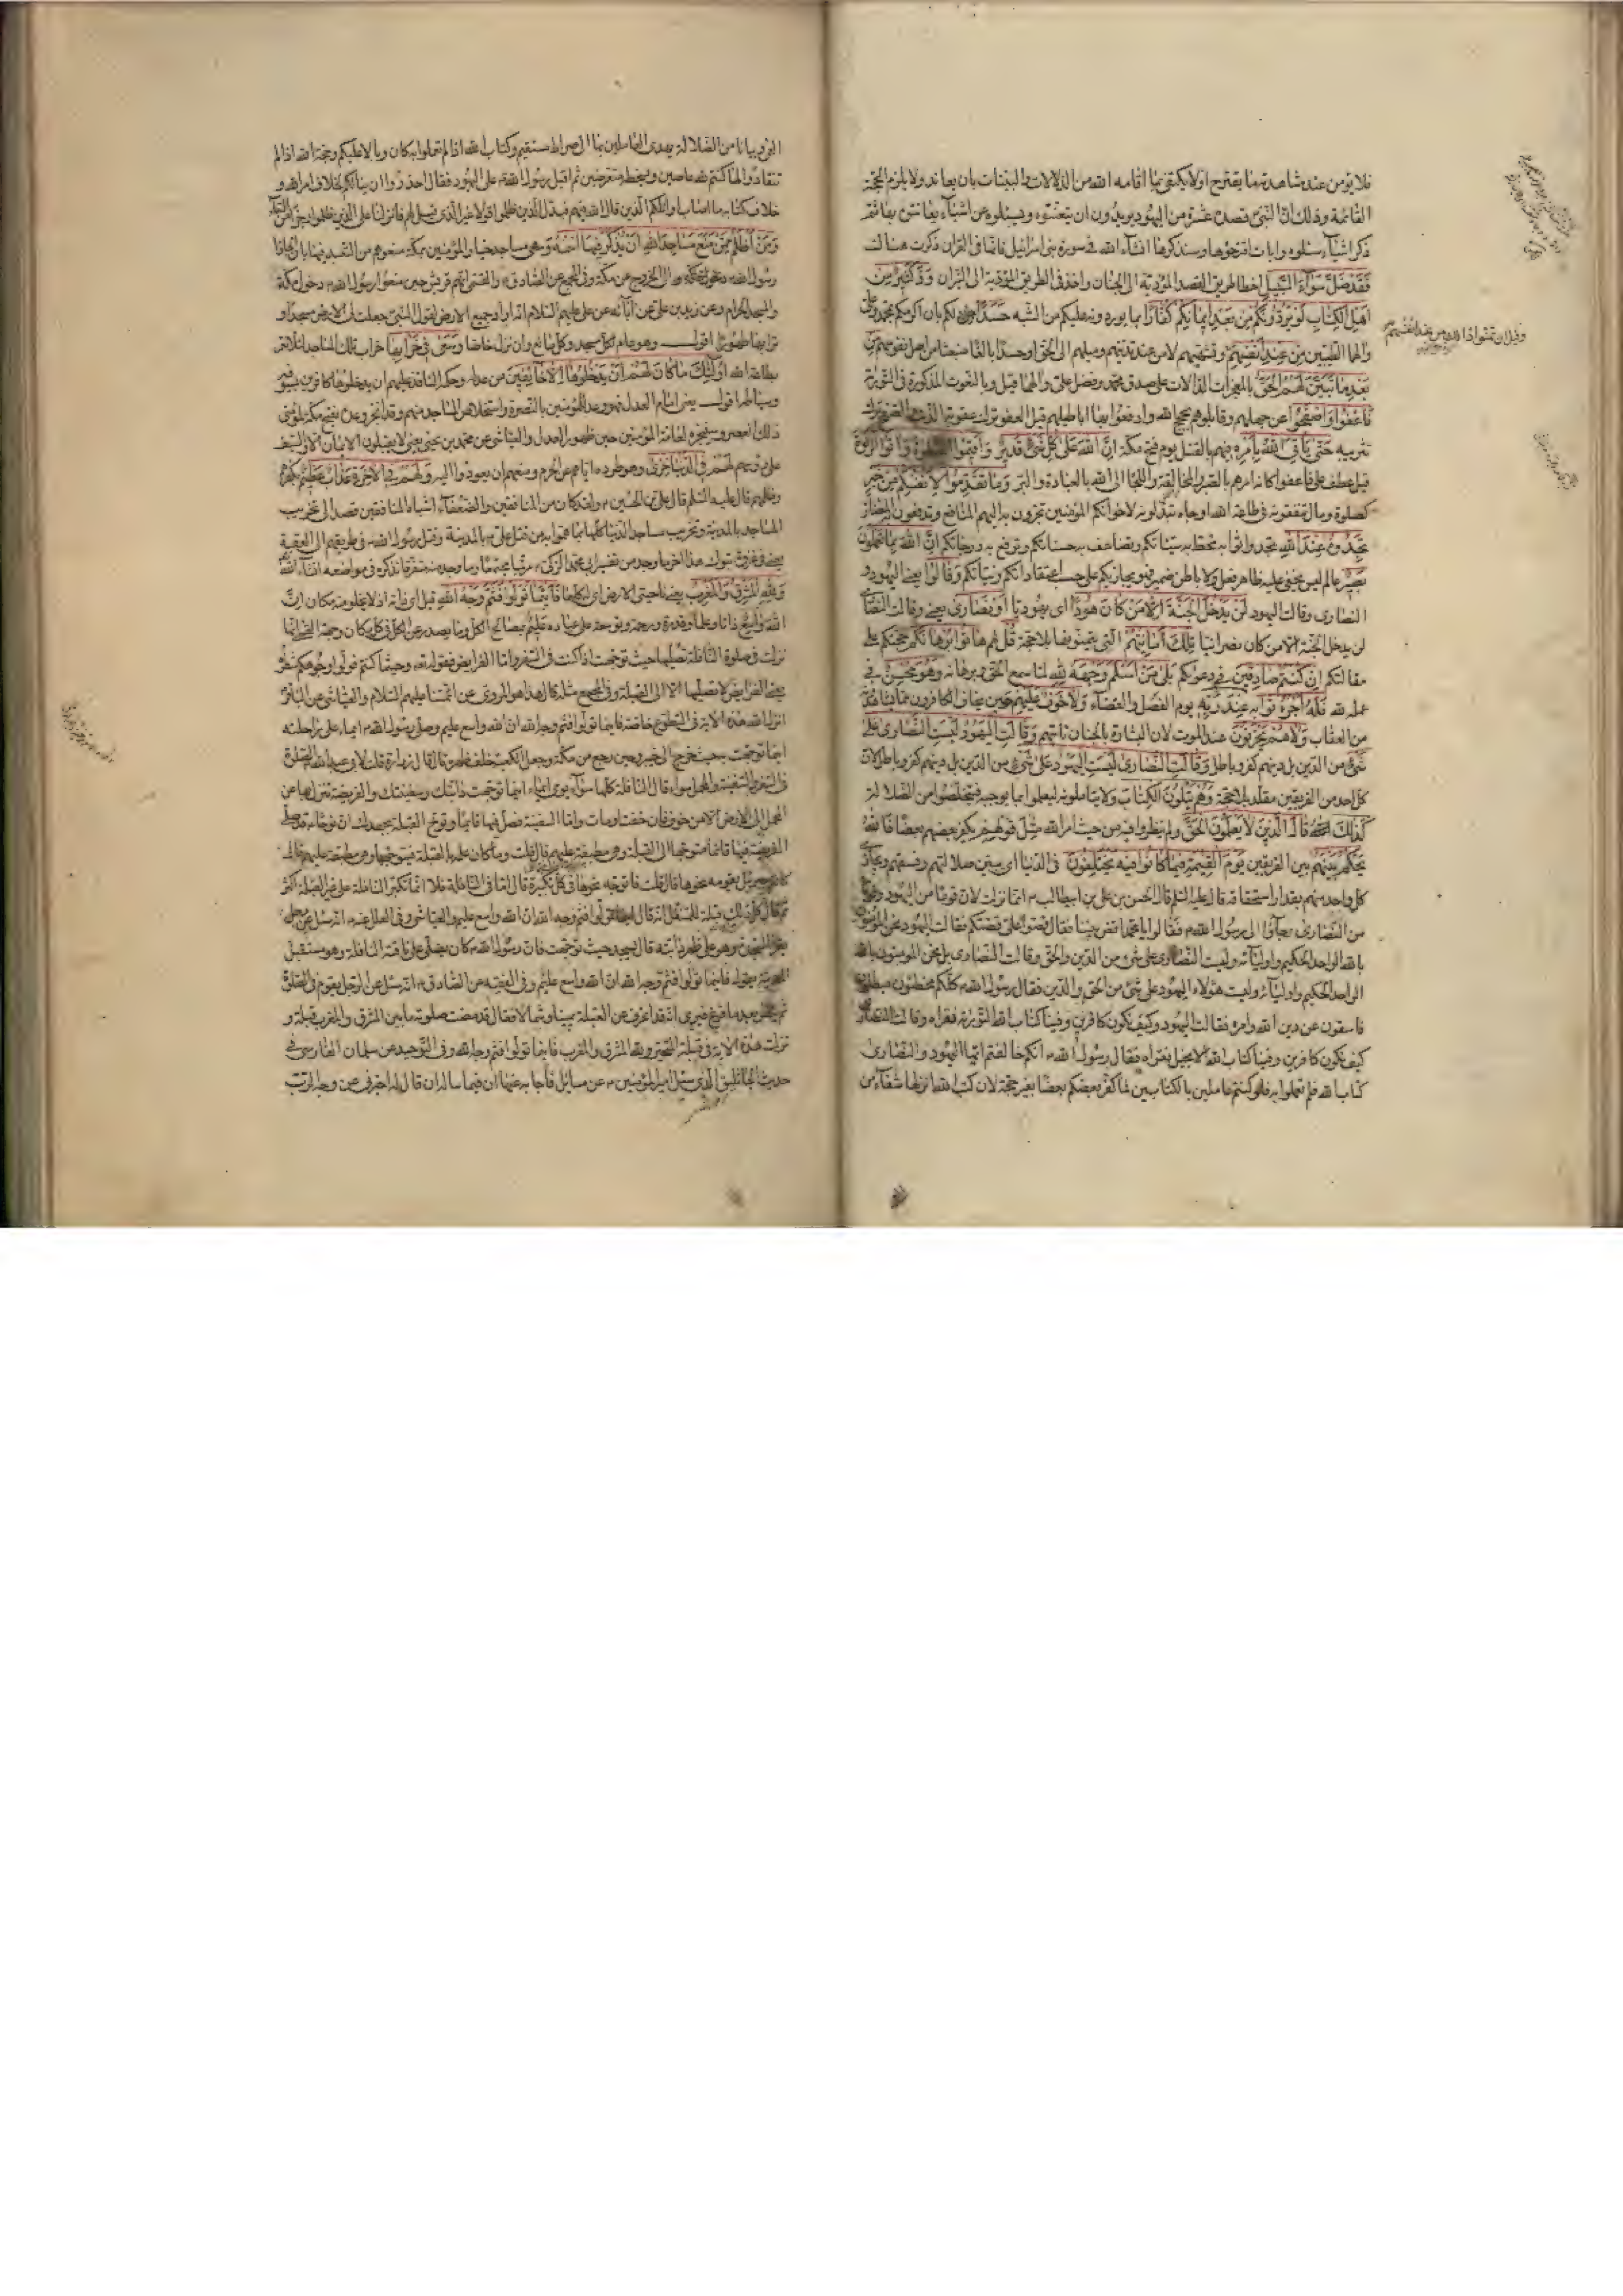 فلا يؤمن عند مشاهدة ما يقترح او لا يكتفى بما اقامه الله من الدلالات والبينات بان يعاند ولا يلزم الحجة
القائمة وذلك ان النبى قصده عشرة من اليهود يريدون ان يتعنتوه ويسئلوه عن اشياء يعانتونه بها ثم
ذكر اشياء سئلوه وايات اقترحوها وسنذكرها انشاء الله فى سورة بنى اسرائيل فانها فى القران ذكرت هنالك
فَقَدْ ضَلَّ سَوَاءَ السَّبِيلِ اخطا طريق القصد المؤدية الى الجنان واخذ فى الطريق المؤدية الى النيران وَدَّ كَثِيرٌ مِنْ
اَهْلِ الْكِتَابِ لَوْ يَرُدُّونَكُمْ مِنْ بَعْدِ اِيمَانِكُمْ كُفَّارًا بما يوردونه عليكم من الشبه حَسَدًا لكم بان اكرمكم بمحمد وعلى
والهما الطيبين مِنْ عِنْدِ اَنْفُسِهِمْ
بَعْدِ مَا تَبَيَّنَ لَهُمُ الْحَقُّ بالمعجزات الدالات على صدق محمد وفضل على والهما قيل وبالنعوت المذكورة فى التورية
فَاعْفُوا وَاصْفَحُوا عن جهلهم وقابلوهم بحجج الله وادفعوا بها اباطيلهم قيل العفو ترك عقوبة الذنب والصفح ترك
تثريبه حَتَّى يَاْتِىَ اللهُ بِاَمْرِهِ فيهم بالقتل يوم فتح مكة اِنَّ اللهَ عَلَى كُلِّ شَىْءٍ قَدِيرٌ وَاَقِيمُوا الصَّلٰوةَ وَآتُوا الزَّكٰوةَ
قيل عطف على فاعفوا كانه امرهم بالصبر والمخالفة واللجا الى الله بالعبادة والبر وَمَا تُقَدِّمُوا لِاَنْفُسِكُمْ مِنْ خَيْرٍ
كصلوة ومال تنفقونه فى طاعة الله اوجاه تبذلونه لاخوانكم المؤمنين تجرون به اليهم المنافع وتدفعون المضار
تَجِدُوهُ عِنْدَ اللهِ تجدوا ثوابه تحط به سيئاتكم وتضاعف به حسناتكم وترفع به درجاتكم اِنَّ اللهَ بِمَا تَعْمَلُونَ
بَصِيرٌ عالم ليس يخفى عليه ظاهر فعل ولا باطن ضمير فهو يجازيكم على حسب اعتقاداتكم ونياتكم وَقَالُوا يعنى اليهود و
النصارى وقالت اليهود لَنْ يَدْخُلَ الْجَنَّةَ اِلَّا مَنْ كَانَ هُودًا اى يهوديا اَوْ نَصَارَى يعنى وقالت النصارى
لن يدخل الجنة الا من كان نصرانيا تِلْكَ اَمَانِيُّهُمْ التى يتمنونها بلا حجة قُلْ لهم هَاتُوا بُرْهَانَكُمْ حجتكم على
مقالتكم اِنْ كُنْتُمْ صَادِقِينَ فى دعوٰكم بَلَى مَنْ اَسْلَمَ وَجْهَهُ لِلّٰهِ لما سمع الحق وبرهانه وَهُوَ مُحْسِنٌ فى
عمله لله فَلَهُ اَجْرُهُ ثوابه عِنْدَ رَبِّهِ يوم الفصل والقضاء وَلَا خَوْفٌ عَلَيْهِمْ حين يخاف الكافرون مما يشاهدونه
من العقاب وَلَا هُمْ يَحْزَنُونَ عند الموت لان البشارة بالجنان تاتيهم وَقَالَتِ الْيَهُودُ لَيْسَتِ النَّصَارَى عَلَى
شَىْءٍ من الدين بل دينهم كفر وباطل وَقَالَتِ النَّصَارَى لَيْسَتِ الْيَهُودُ عَلَى شَىْءٍ من الدين بل دينهم كفر وباطل لان
كل احد من الفريقين مقلد بلا حجة وَهُمْ يَتْلُونَ الْكِتَابَ ولا يتاملونه ليعملوا بما يوجبه فيتخلصوا من الضلالة
كَذٰلِكَ قَالَ الَّذِينَ لَا يَعْلَمُونَ الحق ولم ينظروا فيه من حيث امر الله مِثْلَ قَوْلِهِمْ يكفر بعضهم بعضا فَاللهُ
يَحْكُمُ بَيْنَهُمْ بين الفريقين يَوْمَ الْقِيٰمَةِ فِيمَا كَانُوا فِيهِ يَخْتَلِفُونَ فى الدنيا اى يبين ضلالتهم وفسقهم ويجازى
كل واحد منهم بقدر استحقاقه قال عليه السلم قال الحسن بن على بن ابيطالب انما نزلت لان قوما من اليهود وقوما
من النصارى جاؤا الى رسول الله فقالوا يا محمد اقض بيننا فقال قصوا على قصتكم فقالت اليهود نحن المؤمنون
بالله الواحد الحكيم واوليائه وليست النصارى على شىء من الدين والحق وقالت النصارى بل نحن المؤمنون بالله
الواحد الحكيم واوليائه وليست هؤلاء اليهود على شىء من الحق والدين فقال رسول الله كلكم مخطئون مبطلون
فاسقون عن دين الله وامره فقالت اليهود وكيف نكون كافرين وفينا كتاب الله التورية نقراه وقالت النصارى
كيف نكون كافرين وفينا كتاب الله الانجيل نقراه فقال رسول الله انكم خالفتم ايها اليهود والنصارى
كتاب الله فلم تعملوا به فلو كنتم عاملين بالكتابين لما كفر بعضكم بعضا بغير حجة لان كتب الله انزلها شفاء من
وقيل ان تمنوا ذلك من عند انفسهم
العمى وبيانا من الضلالة يهدى العاملين بها الى صراط مستقيم وكتاب الله اذا لم تعملوا به كان وبالا عليكم وحجة الله اذا لم
تنقادوا لها كنتم لله عاصين ولسخطه متعرضين ثم اقبل رسول الله على اليهود فقال احذروا ان ينالكم بخلاف امر الله و
خلاف كتابه ما اصاب اوائلكم الذين قال الله فيهم فبدل الذين ظلموا قولا غير الذى قيل لهم فانزلنا على الذين ظلموا رجزا من السماء
وَمَنْ اَظْلَمُ مِمَّنْ مَنَعَ مَسَاجِدَ اللهِ اَنْ يُذْكَرَ فِيهَا اسْمُهُ وهى مساجد خيار المؤمنين بمكة منعوهم من التعبد فيها بان الجاؤا
رسول الله الى الخروج عن مكة وفى المجمع عن الصادق والقمى انهم قريش حين منعوا رسول الله دخول مكة
والمسجد الحرام وعن زيد بن على عن آبائه عن على عليهم السلام انه اراد جميع الارض لقول النبى جعلت لى الارض مسجدا و
ترابها طهورا اقول وهو عام لكل مسجد وكل مانع وان نزل خاصا وَسَعَى فِى خَرَابِهَا خراب تلك المساجد لئلا تعمر
بطاعة الله اُولٰئِكَ مَا كَانَ لَهُمْ اَنْ يَدْخُلُوهَا اِلَّا خَائِفِينَ من عدله وحكمه النافذ عليهم ان يدخلوها كافرين بسيوفه
وسياطه اقول يعنى امام العدل فهو وعد للمؤمنين بالنصرة واستخلاص المساجد منهم وقد انجز وعده بفتح مكة لمؤمنى
ذلك العصر وسينجزه لعامة المؤمنين حين ظهور العدل والعياشى عن محمد بن يحيى يعنى لا يقبلون الايمان الا والسيف
على رؤسهم لَهُمْ فِى الدُّنْيَا خِزْىٌ وهو طرده اياهم عن الحرم ومنعهم ان يعودوا اليه وَلَهُمْ فِى الْآخِرَةِ عَذَابٌ عَظِيمٌ بكفرهم
وظلمهم قال عليه السلم قال على بن الحسين ولقد كان من المنافقين والضعفاء اشباه المنافقين قصد الى تخريب
المساجد بالمدينة وتخريب مساجد الدنيا كلها بما هموا به من قتل على بالمدينة وقتل رسول الله فى طريقهم الى العقبة
يعنى فى غزوة تبوك هذا اخر ما وجد من تفسير ابى محمد الزكى مرتبا مجتمعا وما وجد منه متفرقا نذكره فى مواضعه انشاء الله
وَلِلّٰهِ الْمَشْرِقُ وَالْمَغْرِبُ يعنى ناحيتى الارض اى له كلها فَاَيْنَمَا تُوَلُّوا فَثَمَّ وَجْهُ اللهِ قيل اى ذاته اذ لا يخلو منه مكان اِنَّ
اللهَ وَاسِعٌ ذاتا وعلما وقدرة ورحمة وتوسعة على عباده عَلِيمٌ بمصالح الكل وما يصدر عن الكل فى كل مكان وجهة القمى انها
نزلت فى صلوة النافلة تصليها حيث توجهت اذا كنت فى السفر واما الفرايض فقوله وحيثما كنتم فولوا وجوهكم شطره
يعنى الفرايض لا تصليها الا الى القبلة وفى المجمع مثله قال هذا هو المروى عن ائمتنا عليهم السلام والعياشى عن الباقر
انزل الله هذه الاية فى التطوع خاصة فاينما تولوا فثم وجه الله ان الله واسع عليم وصلى رسول الله ايماء على راحلته
اينما توجهت به حيث خرج الى خيبر وحين رجع من مكة وجعل الكعبة خلف ظهره قال قال زرارة قلت لابى عبد الله الصلوة
فى السفر والسفينة والمحمل سواء قال النافلة كلها سواء تومى ايماء اينما توجهت دابتك وسفينتك والفريضة تنزل لها عن
المحمل الى الارض الا من خوف فان خفت اومات واما السفينة فصل فيها قائما وتوخ القبلة بجهدك ان نوحا قد صلى
الفريضة فيها قائما متوجها الى القبلة وهى مطبقة عليهم قال قلت وما كان علمه بالقبلة فيتوجهها وهى مطبقة عليهم قال
كان جبرئيل يقومه نحوها قال قلت فاتوجه نحوها فى كل تكبيرة قال اما فى النافلة فلا انما تكبر النافلة على غير القبلة اكثر
ثم قال كل ذلك قبلة للمتنفل انه قال فاينما تولوا فثم وجه الله ان الله واسع عليم والعياشى وفى العلل عنه انه سئل عن رجل
يقرا السجدة وهو على ظهر دابته قال يسجد حيث توجهت فان رسول الله كان يصلى على ناقته النافلة وهو مستقبل
المدينة يقول فاينما تولوا فثم وجه الله ان الله واسع عليم وفى الفقيه عن الصادق انه سئل عن الرجل يقوم فى الصلوة
ثم ينظر بعد ما فرغ فيرى انه قد انحرف عن القبلة يمينا وشمالا فقال قد مضت صلوته وما بين المشرق والمغرب قبلة و
نزلت هذه الاية فى قبلة المتحير ولله المشرق والمغرب فاينما تولوا فثم وجه الله وفى التوحيد عن سلمان الفارسى فى
حديث الجاثليق الذى سئل امير المؤمنين عن مسائل فاجابه عنها ان فيما ساله ان قال له اخبرنى عن وجه الرب